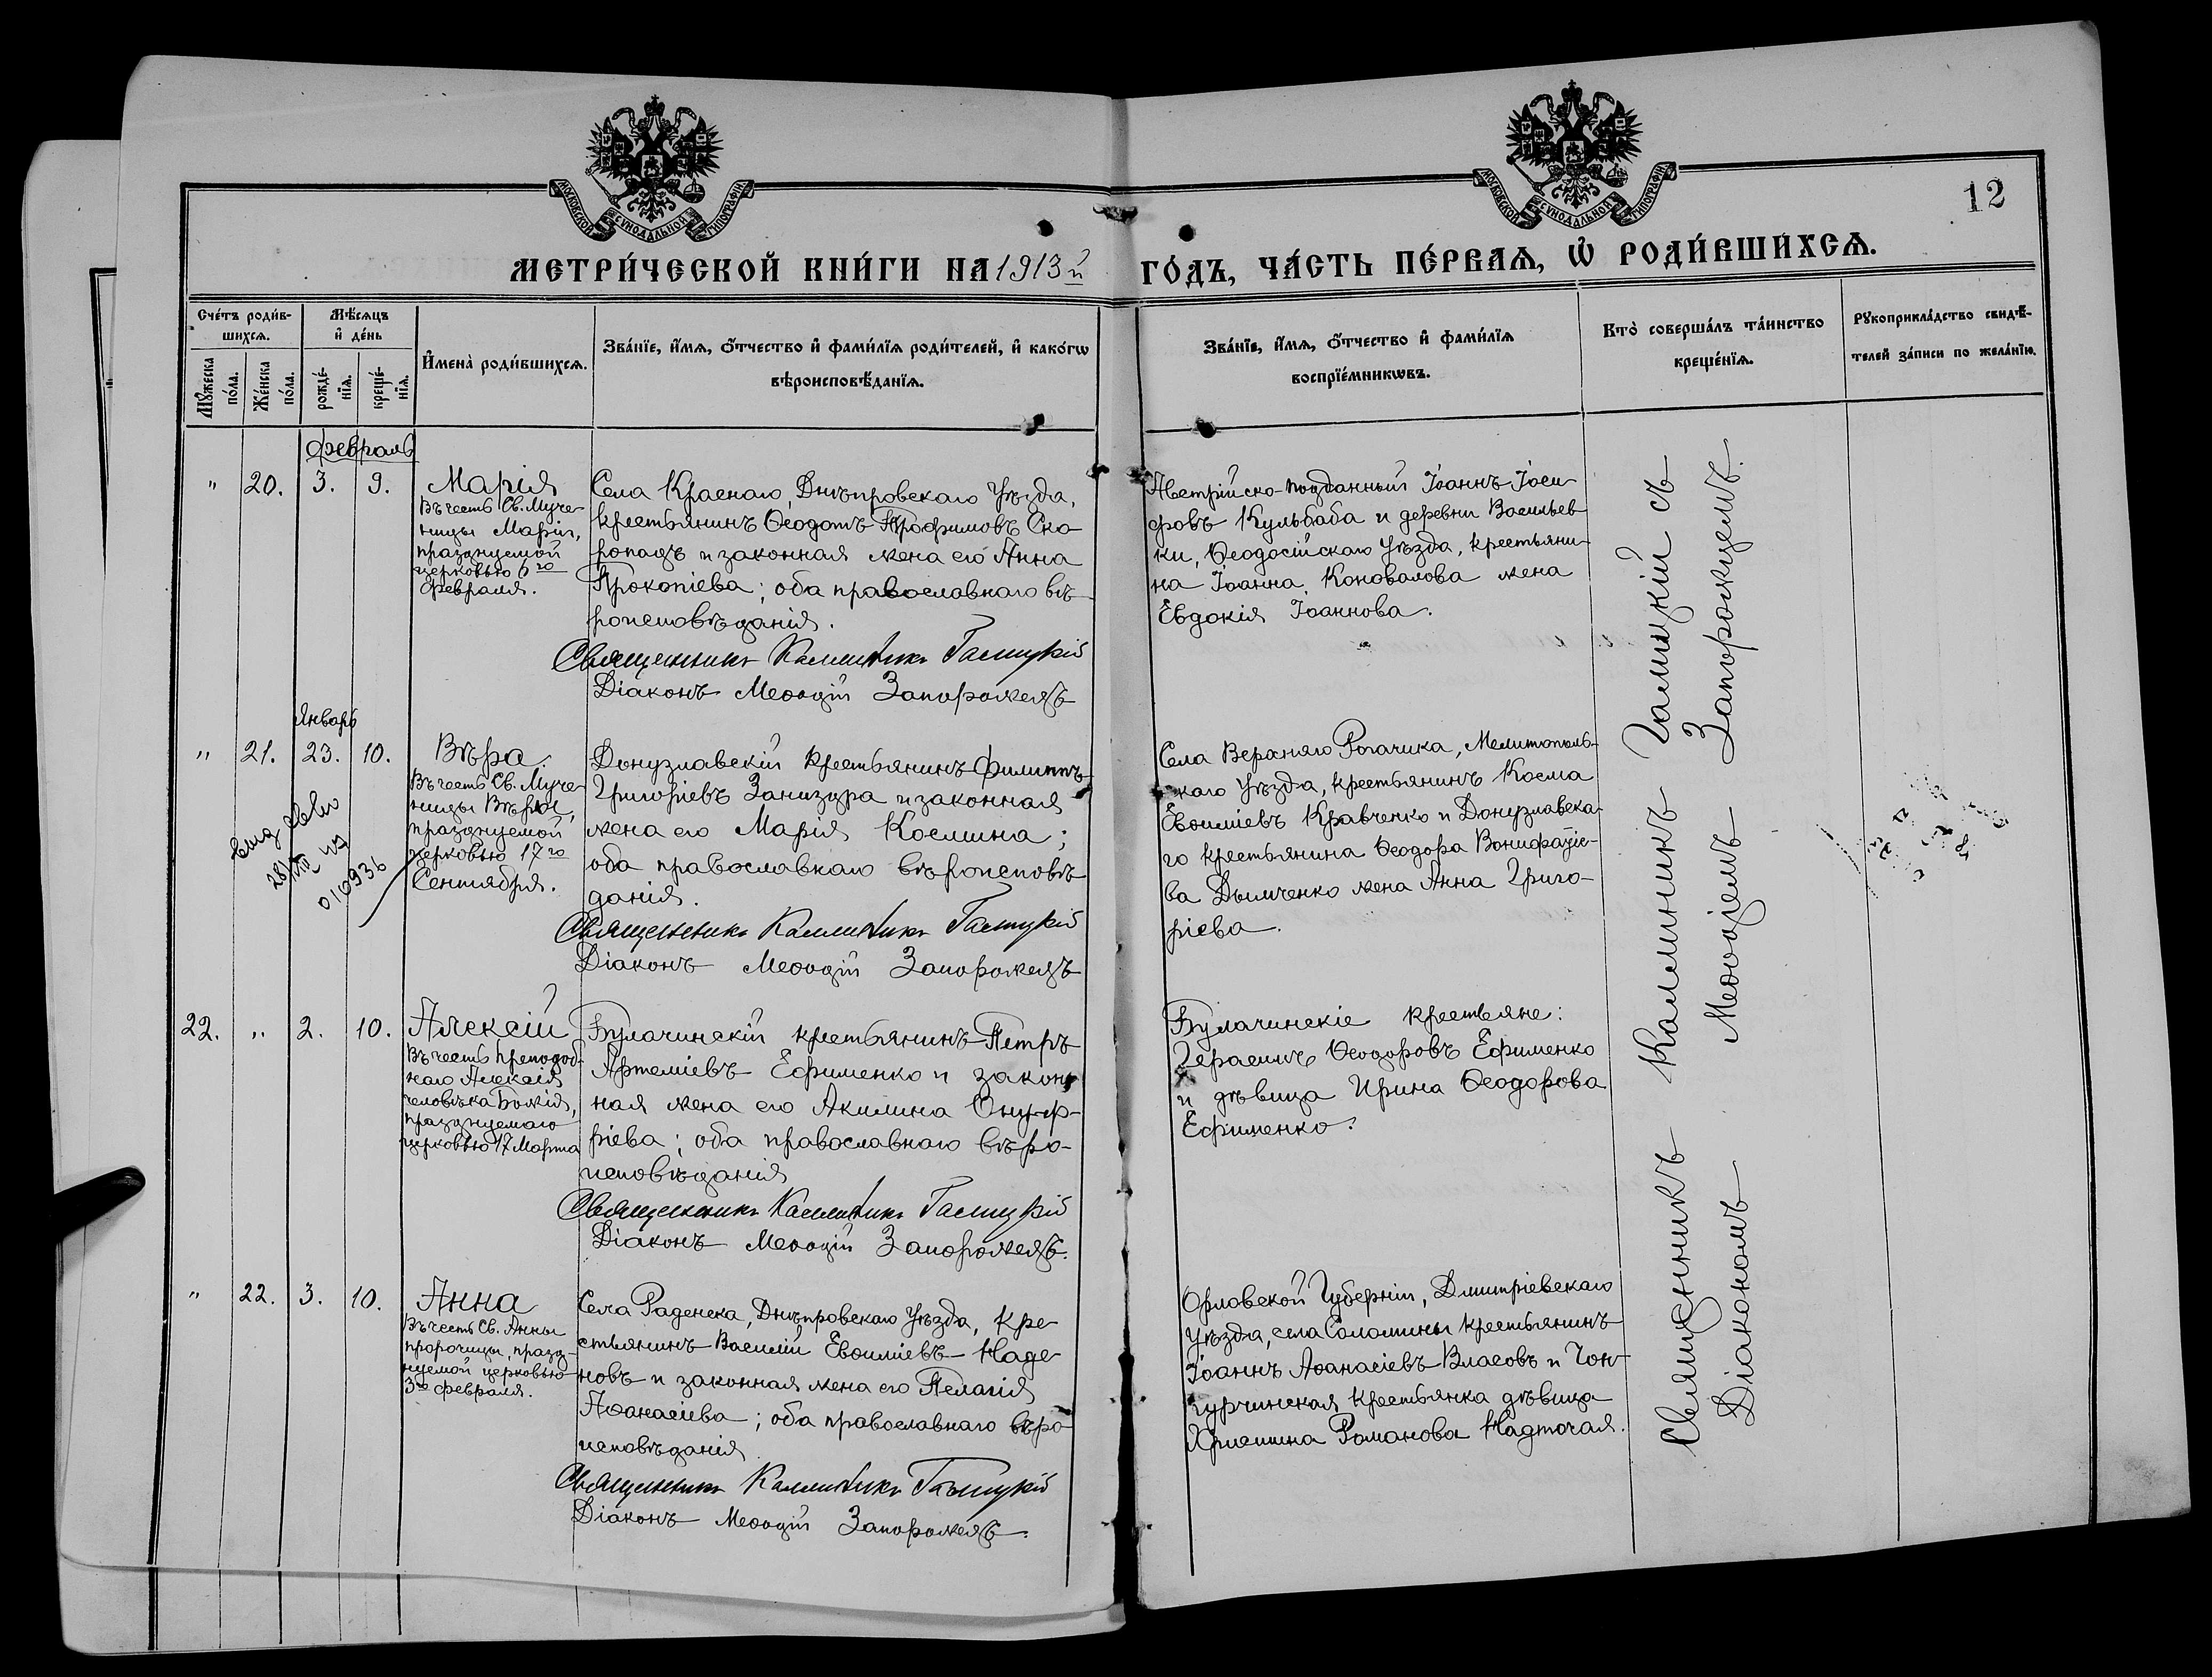 МОСКОВСКОЙ СУНОДАЛЬНОЙ ТИПОГРАФІИ
МОСКОВСКОЙ СУНОДАЛЬНОЙ ТИПОГРАФІИ
12
МЕТРИ́ЧЕСКОЙ КНИ́ГИ НА 1913й ГО́ДЪ, ЧА́СТЬ ПЕ́РВАѦ, Ѡ҆ РОДИ́ВШИХСѦ.
Сче́тъ роди́в-
шихсѧ.
Мꙋ́жеска
по́ла.
Же́нска
по́ла.
Мѣ́сѧцъ
и҆ де́нь
рожде́-
нїѧ.
креще́-
нїѧ.
И҆мена̀ роди́вшихсѧ.
Зва́нїе, и҆́мѧ, ѻ҆́тчество и҆ фами́лїѧ роди́телей, и҆ како́гѡ
вѣроисповѣ́данїѧ.
Зва́нїе, и҆́мѧ, ѻ҆́тчество и҆ фами́лїѧ
воспрїе́мникѡвъ.
Кто̀ соверша́лъ та́инство
креще́нїѧ.
Рꙋкоприкла́дство свидѣ́-
телей за́писи по жела́нїю.
Февраль
" 20. 3. 9.
Марія
Въ честь Св. Муче-
ницы Маріи,
празднуемой
церковью 6го
Февраля.
Села Краснаго, Днѣпровскаго Уѣзда,
крестьянинъ Ѳеодотъ Трофимовъ Ско
ропадъ и законная жена его Анна
Прокопіева; оба православнаго вѣ-
роисповѣданія.
Священникъ Каллиникъ Галицкій
Діаконъ Меѳодій Запорожецъ
Австрійско-подданный Іоаннъ Іоси-
фовъ Кульбаба и деревни Васильев
ки, Ѳеодосійскаго Уѣзда, крестьяни-
на Іоанна Коновалова жена
Евдокія Іоаннова.
Январь
" 21. 23. 10.
Вѣра.
Въ честь Св. Муче-
ницы Вѣры,
празднуемой
церковью 17го
Сентября.
010936
Донузлавскій крестьянинъ Филиппъ
Григоріевъ Занизура и законная
жена его Марія Космина;
оба православнаго вѣроисповѣ
данія.
Священникъ Каллиникъ Галицкій
Діаконъ Меѳодій Запорожецъ
Села Верхняго Рогачика, Мелитополь-
скаго Уѣзда, крестьянинъ Косма
Евѳиміевъ Кравченко и Донузлавска-
го крестьянина Ѳеодора Вонифатіе-
ва Дымченко жена Анна Григо-
ріева.
22. " 2. 10.
Алексій
Въ честь Преподоб-
наго Алексія
человѣка Божія,
празднуемаго
церковью 17 Марта
Булачинскій крестьянинъ Петръ
Артеміевъ Ефименко и закон
ная жена его Акилина Онуф-
ріева; оба православнаго вѣро-
исповѣданія
Священникъ Каллиникъ Галицкій
Діаконъ Меѳодій Запорожецъ.
Булачинскіе крестьяне:
Герасимъ Ѳеодоровъ Ефименко
и дѣвица Ирина Ѳеодорова
Ефименко.
" 22. 3. 10.
Анна
Въ честь Св. Анны
пророчицы, празд-
нуемой церковью
3го Февраля.
Села Раденска, Днѣпровскаго Уѣзда, кре
стьянинъ Василій Евѳиміевъ Наде-
новъ и законная жена его Пелагія
Аѳанасіева; оба православнаго вѣро
исповѣданія
Священникъ Каллиникъ Галицкій
Діаконъ Меѳодій Запорожецъ.
Орловской Губерніи, Дмитріевскаго
Уѣзда, села Соломины крестьянинъ
Іоаннъ Аѳанасіевъ Власовъ и Чон-
гурчинская крестьянка дѣвица
Христина Романова Надточая.
Священникъ Каллиникъ Галицкій съ
Діакономъ Меѳодіемъ Запорожцемъ.